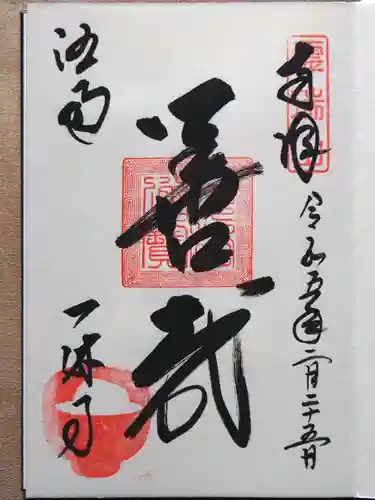 奉拝 令和五年二月二十五日
善哉
洛南
一休寺